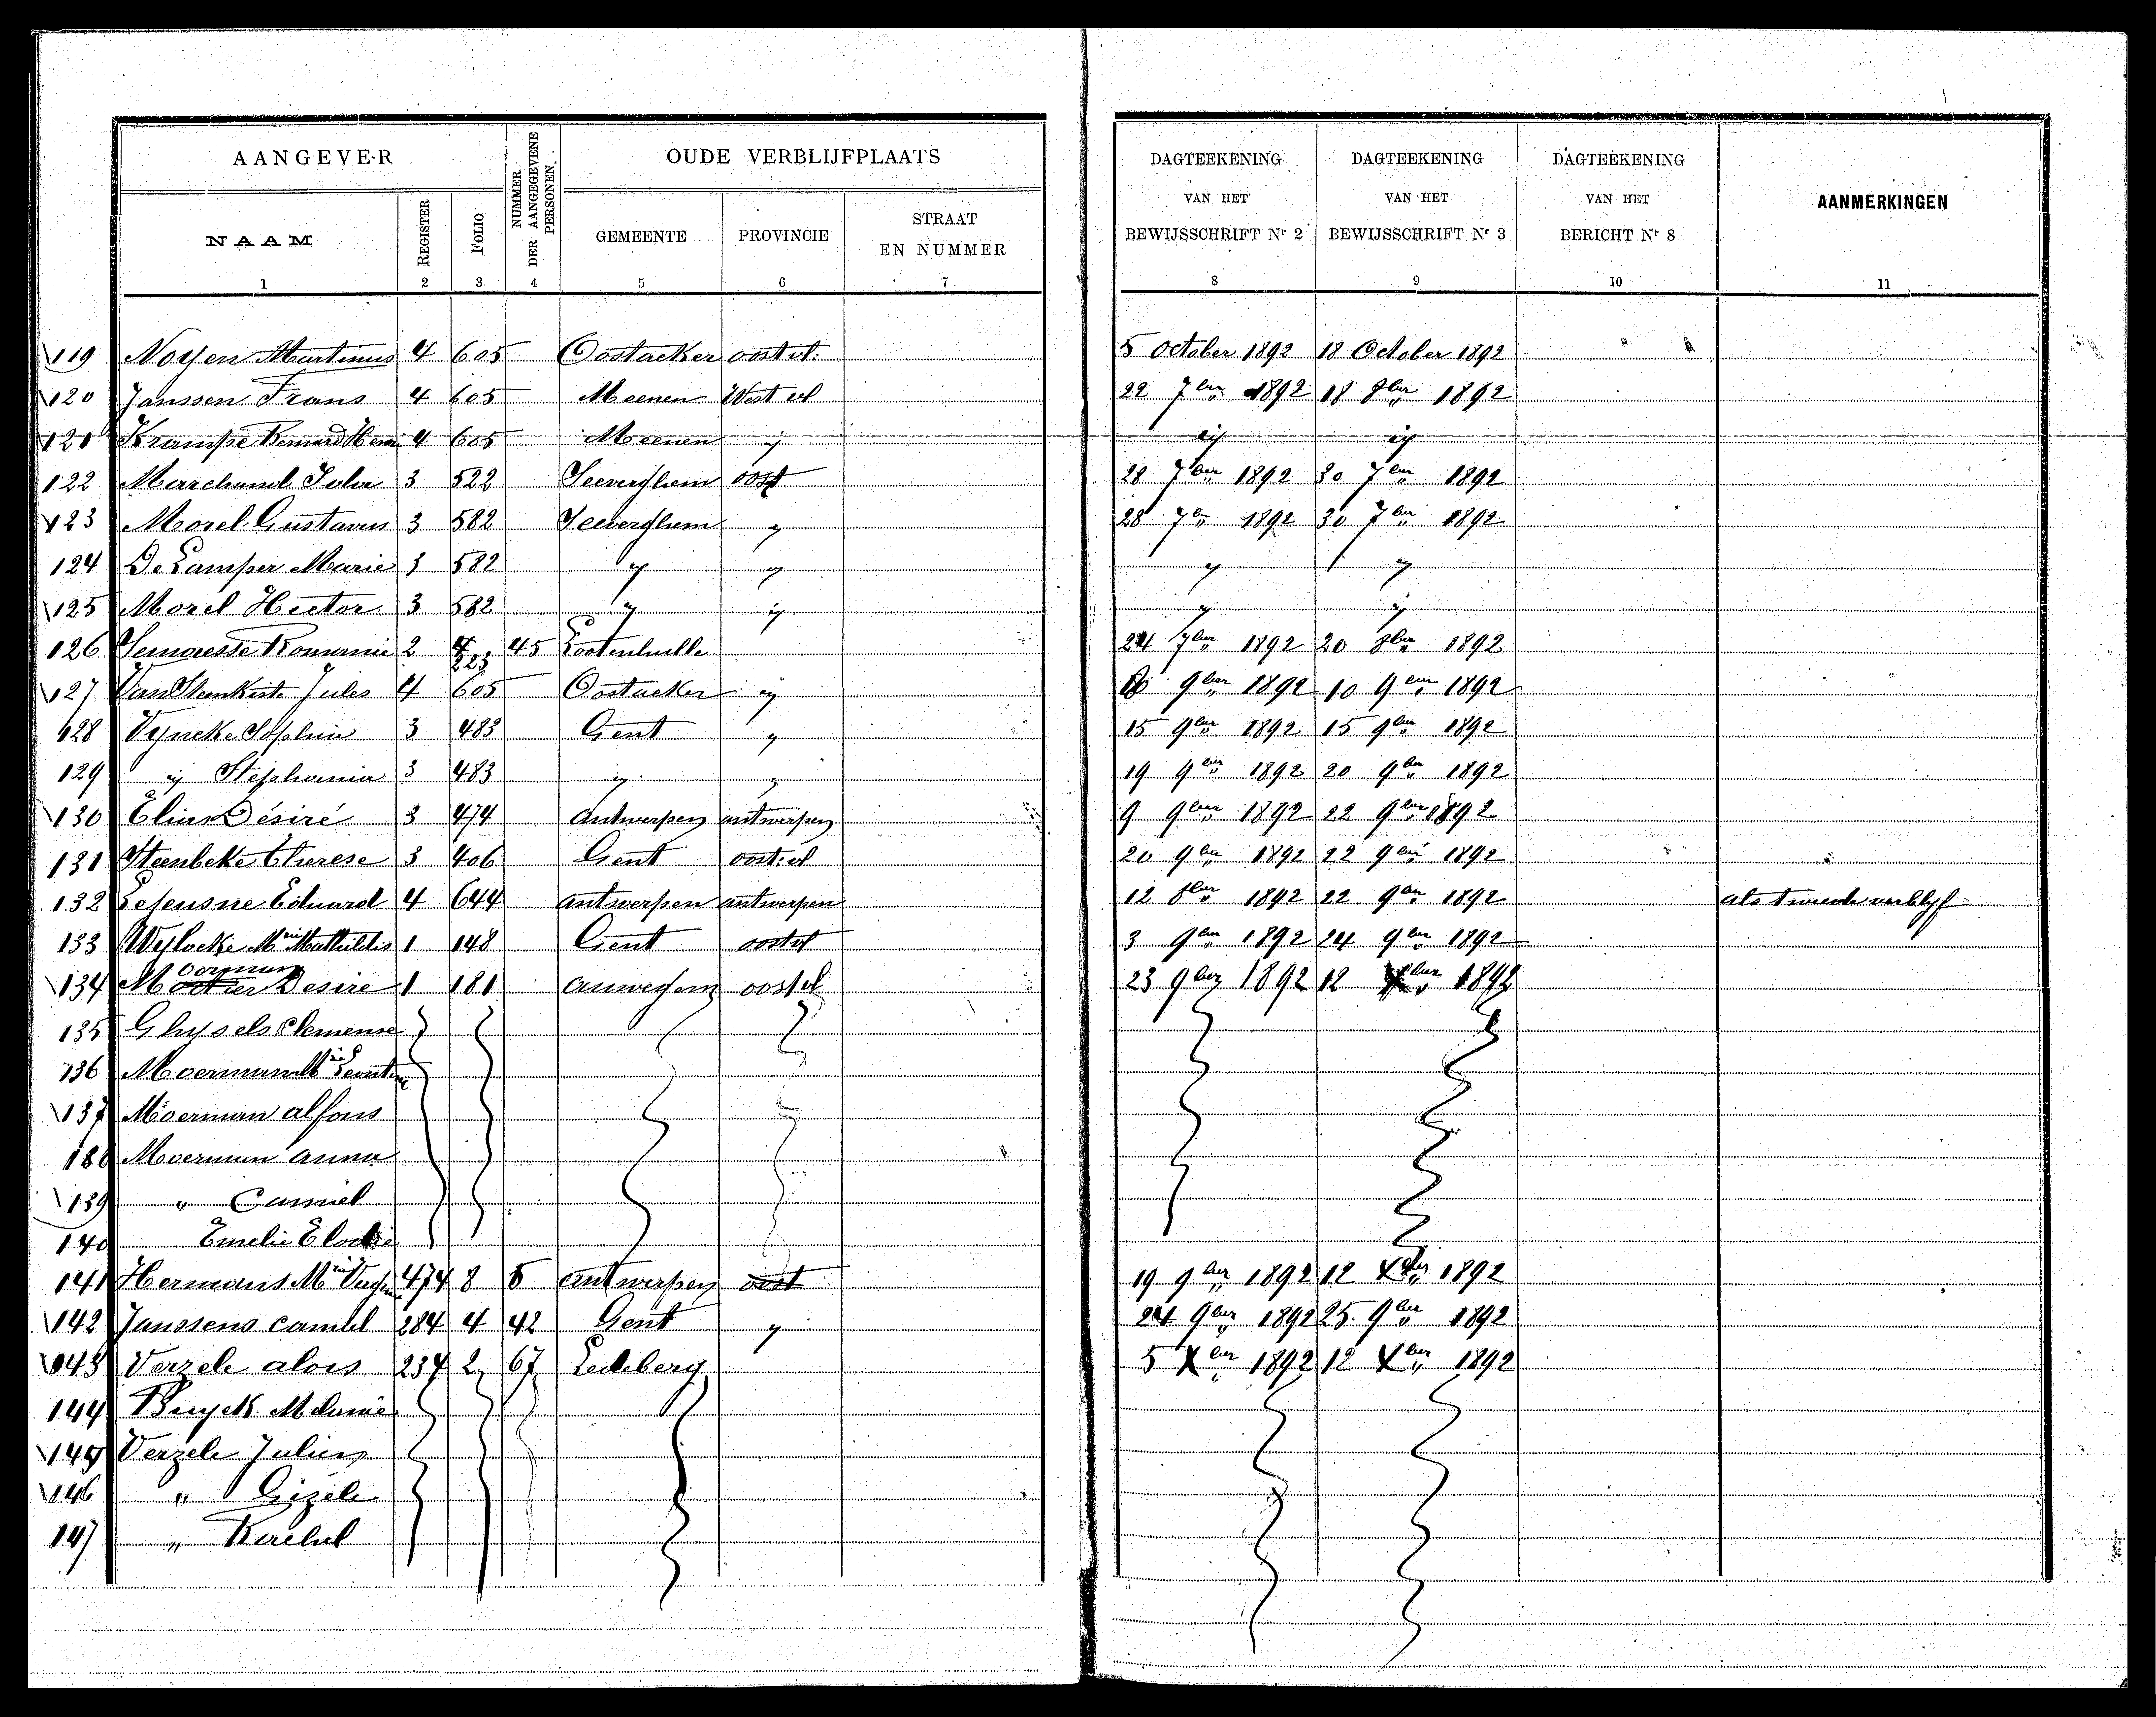 AANGEVER
NUMMER DER AANGEGEVENE PERSONEN.
OUDE VERBLIJFPLAATS
DAGTEEKENING VAN HET BEWIJSSCHRIFT Nr 2
DAGTEEKENING VAN HET BEWIJSSCHRIFT Nr 3
DAGTEEKENING VAN HET BERICHT Nr 8
AANMERKINGEN
NAAM
REGISTER
FOLIO
GEMEENTE
PROVINCIE
STRAAT EN NUMMER
1 2 3 4 5 6 7 8 9 10 11
119 Noyen Martinus 4 605 Oostacker oost vl. 5 October 1892 18 October 1892
120 Janssen Frans 4 605 Meenen West vl 22 7ber 1892 18 8ber 1892
121 Krampe Bernard Henri 4 605 Meenen ij ij ij
122 Marchand Julia 3 522 Seeverghem oost 28 7ber 1892 30 7ber 1892
123 Morel Gustavus 3 582 Seeverghem y 28 7ber 1892 30 7ber 1892
124 De Lamper Marie 3 582 y y y y
125 Morel Hector 3 582 y ij y ij
126 Romanie 2 223 45 Lootenhulle 24 7ber 1892 20 8ber 1892
127 Van Steenkiste Jules 4 605 Oostacker ij 9ber 1892 10 9ber 1892
128 Vyncke Sophia 3 483 Gent y 15 9ber 1892 15 9ber 1892
129 ij Stephania 3 483 y y 19 9ber 1892 20 9ber 1892
130 Elias Désiré 3 474 antwerpen antwerpen 9 9ber 1892 22 9ber 1892
131 Steenbeke Therese 3 406 Gent oost vl 20 9ber 1892 22 9ber 1892
132 Lejeusne Eduard 4 644 antwerpen antwerpen 12 8ber 1892 22 9ber 1892 als tweede verblyf
133 Weylaeke Mrie Mathildis 1 148 Gent oost vl 3 9ber 1892 24 9ber 1892
134 Moerman Desire 1 181 anweghem oost vl 23 9ber 1892 12 Xber 1892
135 Ghysels Clemense
136 Moerman Mrie Leontine
137 Moerman alfons
138 Moerman anna
139 " Camiel
140 Emelie Elodie
141 Hermans Mrie 474 8 5 antwerpen oost 19 9ber 1892 12 Xber 1892
142 Janssens Camiel 284 4 42 Gent y 24 9ber 1892 25 9ber 1892
143 Verzele alois 234 2 67 Ledeberg 5 Xber 1892 12 Xber 1892
144 Buyck Melanie
145 Verzele Julien
146 " Gizele
147 " Rachel